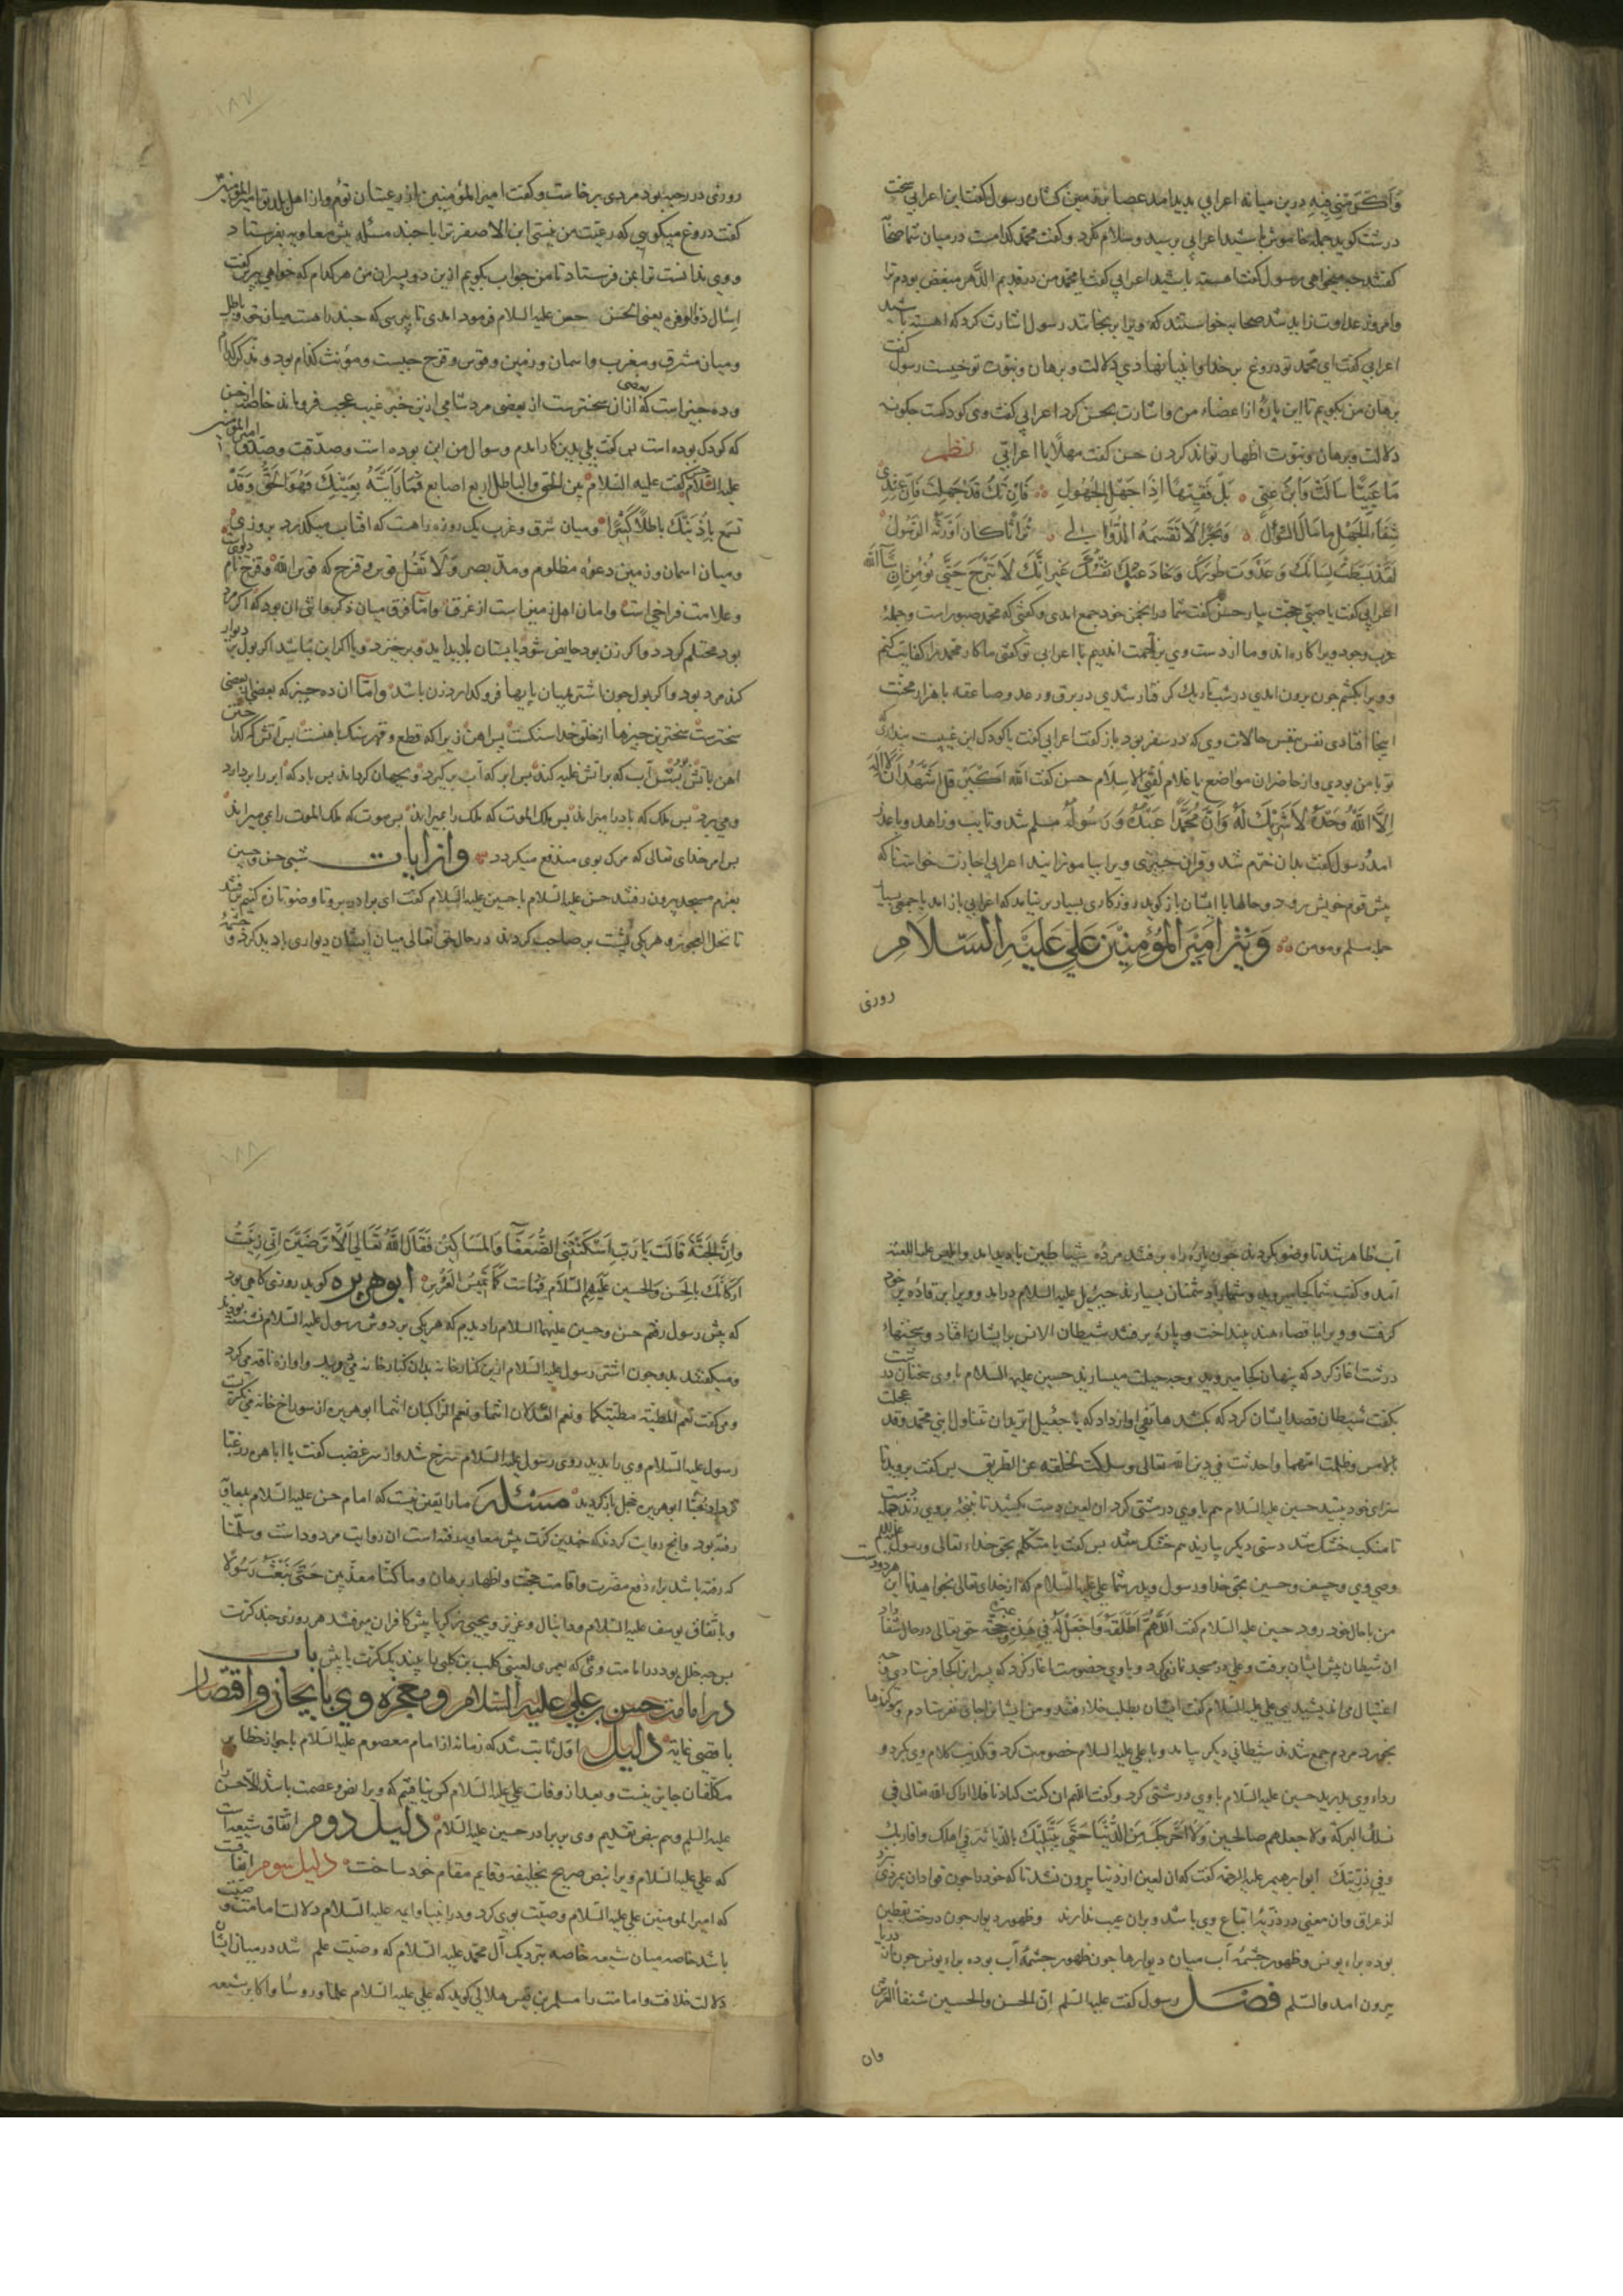 وَاَكْرَمَنِي فِيهِ درین میانه اعرابی بدید امد عصا بر زمین کشان رسول کفت این اعرابی سخت
درشت کوید جمله خاموش باشید اعرابی برسید وسلام نکرد وکفت محمد کدامست در میان شما صحابه
کفتند چه میخواهی رسول کفت اهسته باشید اعرابی کفت یا محمد من در قدیم الدهر مبغض بودم ترا
وامروز عداوت زاید شد صحابه خواستند که ویرا برنجانند رسول اشارت کرد که اهسته باشید
اعرابی کفت ای محمد تو دروغ بر خدا وانبیا نهادی دلالت وبرهان ونبوت تو چیست رسول کفت
برهان من بکویم تا این پاره از اعضاء من واشارت بحسن کرد اعرابی کفت وی کودکست چکونه
دلالت وبرهان ونبوت اظهار تواند کردن حسن کفت مهلا یا اعرابی نظم
مَا غَبِيًّا سَالتَ وَابنَ غَبِيٍّ بَلْ فَقِيهًا اِذًا جَهِلَ الجَهُولِ فَاِنْ تَكُ قَدْ جَهِلتَ فَاِنَّ عِنْدِي
شِفَاءَ الجَهلِ ما سَالَ السَّئُولُ وَبَحْرًا لَا تَقَسِّمُهُ الدَّوَالِي تُرَاثًا كان اَوْرَثَهُ الرَّسُولُ
لَقَدْ بَسَطْتَ لِسَانَكَ وَعَدَوْتَ طُورَكَ وَخَادَعَتْكَ نَفْسُكَ غَيرَ اِنَّكَ لَا تَبْرَحُ حَتَّي تُؤْمِنَ اِنْ شَاءَ اللّٰه
اعرابی کفت یا صبی حجت بیار حسن کفت شما در انجمن خود جمع امدی وکفتی که محمد صبور است وجمله
عرب وجود ویرا کاره اند وما از دست وی بزحمت اندیم یا اعرابی تو کفتی ما کار محمد را کفایت کنیم
وویرا بکشم چون برون امدی در شب تاریک کرفتار شدی در برق ورعد وصاعقه با هزار محنت
اینجا افتادی نفس بنفس حالات وی که در سفر بود باز کفت اعرابی کفت یا کودک این غیبست پنداری
تو با من بودی واز حاضران مواضع یا غلام لقنی الاسلام حسن کفت اللّٰه اکبر قل اَشْهَدُ اَنْ لَا اِلٰهَ
اِلَّا اللّٰهُ وَحْدَهُ لَا شَرِيكَ لَهُ وَاَنَّ مُحَمَّدًا عَبْدُهُ وَرَسُولُهُ مسلم شد وتایب وزاهد وباعذر
امد رسول کفت بدان خرم شد وقران چیزی ویرا بیاموزانید اعرابی اجازت خواست تا که
پیش قوم خویش رود وحالها با ایشان باز کوید روزکاری بسیار برنیامد که اعرابی باز امد با جمعی بسیار
جمله مسلم ومومن وَنِيز اَمِيرَ المُؤْمِنِيْنَ عَلِي عَلَيْهِ السَّلَامِ
روزی
روزی در رحبه بود مردی برخاست وکفت امیر المؤمنین از رعیتان توم واز اهل بلد تو امیر المؤمنین
کفت دروغ میکویی که رعیت من نیستی ابن الاصفر ترا با چند مسئله پیش معاویه بفرستاد
ووی ندانست ترا بمن فرستاد تا من جواب بکویم ازین دو پسران من هر کدام که خواهی بپرس کفت
اسال ذو الوفره یعنی الحسن حسن علیه السلام فرمود امدی تا بپرسی که چند راهست میان حق وباطل
ومیان مشرق ومغرب واسمان وزمین وقوس وقزح چیست ومؤنث کدام بود ومذکر کدام
وده چیز است که از ان سختترست از بعضی مرد شامی ازین خبر غیب عجب فروماند خاصه از حسن
که کودک بوده است پس کفت بلی بدین کار امدم وسوال من این بوده است وصدقت وصدق امیر المؤمنین
علیه السلام حسن کفت علیه السلام بین الحق والباطل اربع اصابع فَمَا رَاَيْتَهُ بِعَيْنِكَ فَهُوَ الحَقُّ وَقَدْ
تسمَعُ بِاُذنَيْكَ بَاطِلًا كَثِيْرًا ومیان شرق وغرب یک روزه راهست که افتاب میکذرد بروزی
ومیان اسمان وزمین دعوه مظلوم ومد بصر وَلَا تَقُلْ قوس قزح که قوس اللّٰه وقزح نام دیوست
وعلامت فراخیست وامان اهل زمین است از غرق واما فرق میان ذکر وانثی ان بود که اکر مرد
بود محتلم کردد واکر زن بود حایض شود یا پستان بادید اید وبرخیزد ویا اکر این نباشد اکر بول بر دیوار
کند مرد بود واکر بول چون اشتر بمیان پایها فرو کذارد زن باشد واما ان ده چیز که بعضی از بعضی
سخترست سختترین چیزها از خلق خدا سنکست پس اهن زیراکه قطع وقهر سنک باهنست پس آتش که کدازد
اهن باتش پس آب که بر آتش غلبه کند پس ابر که آب برکیرد وبجهان کرداند پس باد که ابر را بردارد
ومیبرد پس ملک که باد را میراند پس ملک الموت که ملک را بمیراند پس موت که ملک الموت را می میراند
پس امر خدای تعالی که مرک بوی مندفع میکردد وازایات شبی حسن وحسین
بعزم مسجد بیرون رفتند حسن علیه السلام با حسین علیه السلام کفت ای برادر بیرو تا وضو تازه کنیم برفتند
تا نخل العجوه وهر یکی پشت بر صاحب کردند در حال حق تعالی میان ایشان دیواری بادید کرد وچشمه
آب ظاهر شد تا وضو بکردند چون پاره راه برفتند مرده شیاطین بادید امد وابلیس علیه اللعنه
آمد وکفت شما کجا میروید وشما را دشمنان بسیارند جبرئیل علیه السلام در امد وویرا بر قفاء پر خود
کرفت وویرا باقصاء هند بینداخت وپاره برفتند شیطان الانس بر ایشان افتاد وسخنهاء
درشت اغاز کرد که پنهان کجا میروید وچه حیلت میسازید حسین علیه السلام با وی سخنان درشت
بکفت شیطان قصد ایشان کرد که بکشد هاتفی اواز داد که یا جعیل اتریدان تناول ابنی محمد وقد عجلت
بالامس وظلمت امهما واحدثت فی دین اللّٰه تعالی وسلکت بخلقه عن الطریق پس کفت بروید تا
سزای خود بینید حسین علیه السلام هم با وی درشتی کرد ان لعین دست بکشید تا تپنجه بروی زند دست
تا منکب خشک شد دستی دیکر بیازید هم خشک شد پس کفت یا متکلم بحق خداء تعالی ورسول علیه السلام
وصی وی وحسن وحسین بحق خدا ورسول وپدر شما علی علیه السلام که از خدای تعالی بخواهید تا این هر دو دست
من باحال خود رود حسین علیه السلام کفت اَللّٰهُمَّ اَطْلِقْهُ وَاجْعَلْ لَهُ فِي هَذِهِ عِبْرَةً وَحُجَّة حق تعالی در حال شفا داد
ان شیطان پیش ایشان برفت وعلی در مسجد نماز میکرد وبا وی خصومت اغاز کرد که پسران را کجا فرستادی
اغتیال می اندیشید پس علی علیه السلام کفت ایشان بطلب خلا رفتند ومن ایشان را جای نفرستادم وسوکندها
بخورد مردم جمع شدند شیطانی دیکر بیامد وبا علی علیه السلام خصومت کرد وتکذیب کلام وی کرد و
رداء وی بدرید حسین علیه السلام با وی درشتی کرد
نسلك البركة ولا جعلهم صالحين وَلَا اَخْرَجَكَ مِنَ الدُّنْيَا حَتَّي يَبْتَلِيَكَ
وفی ذریتک ابو ابرهیم علیه الرحمه کفت که ان لعین از دنیا بیرون نشد تا که
از عراق وان معنی در ذریه اتباع وی باشد وبران عیب ندارند وظهور دیوار چون درخت یقطین
بوده براء یونس وظهور چشمه آب میان دیوارها چون ظهور چشمه آب بوده براء یونس چون از دریا
بیرون امد والسلم فصل رسول کفت علیه السلم ان الحسن والحسین شنفا العرش
وان
وَاِنَّ الجَنَّةَ قَالَت يَا رَبِّ اَسْكَنْتَنِي الضُّعَفَاءَ وَالمَسَاكِيْن فَقَالَ اللّٰهُ تَعَالَي اَلَا تَرْضَيْنَ اِنِّي زَيَّنْتُ
اَرْكَانَك بِالحَسَن وَالحُسين عَلَيْهِمَ السَّلَام فمَاسَت كَمَا تَمِيسُ العَرُوسُ ابوهریره کوید روزی کاهی بود
که پیش رسول رفتم حسن وحسین علیهما السلام را دیدم که هر یکی بر دوش رسول علیه السلام نشسته بودند
ومیکفتند بدو چون اشتر رسول علیه السلام ازین کنار خانه بدان کنار خانه می دوید واواز ناقه می کرد
ومی کفت نعم المطیة مطیتکما ونعم العدلان انتما ونعم الراکبان انتما ابوهریره از سوراخ خانه می نکرست
رسول علیه السلام وی را بدید روی رسول علیه السلام سرخ شد واز سر غضب کفت یا اباهره زر غبا
تزدد حبا ابوهریره خجل بازکردید مسئله ما را یقین نیست که امام حسن علیه السلام بمعاویه
رفته بود وانچ روایت کردند که چندین کرت پیش معاویه رفته است ان روایت مردود است وسلمنا
که رفته باشد براء دفع مضرت واقامت حجت واظهار برهان وما کنا معذبین حَتَّی نَبْعَثَ رَسُولًا
وباتفاق یوسف علیه السلام ودانیال وعزیر ویحیی زکریا پیش کافران میرفتند هر روزی چند کرت
پس چه خلل بود در امامت وصی که بعمری لعینی کلب بن کلبی را بیند یک کرت یا بیش باب
در امامت حسن بن علی علیه السلام ومعجزه وی بایجاز واقتصار
باقصی غایة دلیل اول ثابت شد که زمانه از امام معصوم علیه السلام با جواز خطا بر
مکلفان جایز نیست وبعد از وفات علی علیه السلام کس نیافتیم که ویرا نص وعصمت باشد الا حسن را
علیه السلم وهم بنص تقدیم وی بر برادر حسین علیه السلام دلیل دوم اتفاق شیعه است
که علی علیه السلام ویرا بنص صریح خلیفه وقایم مقام خود ساخت دلیل سوم اتفاقست
که امیر المومنین علی علیه السلام وصیت بوی کرد ودر انبیا وایمه علیه السلام دلالت امامت وصیت
باشد خاصه میان شیعه خاصه بنزدیک آل محمد علیه السلام که وصیت علم شد در میان ایشان
دلالت خلافت وامامت را مسلم بن قیس هلالی کوید که علی علیه السلام علما وروسا واکابر شیعه